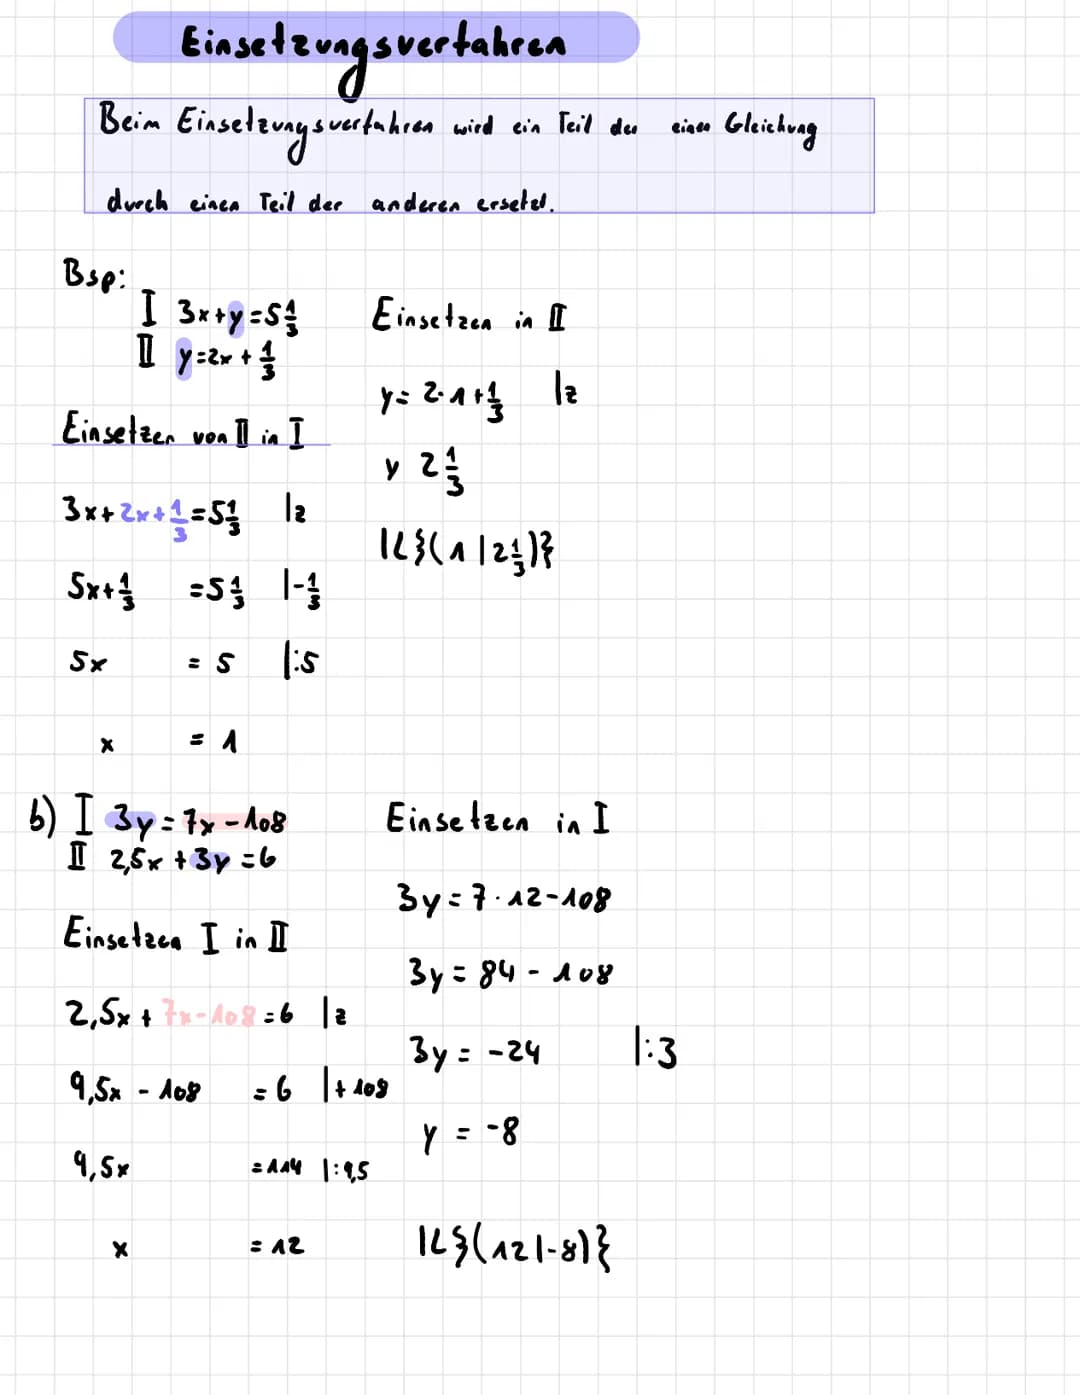 Einsetzungsverfahren
Beim Einsetzungsverfahren wird ein Teil der einen Gleichung
durch einen Teil der anderen ersetzt.
Bsp:
I 3x+y=5 1/3
II y=2x + 1/3
Einsetzen von II in I
3x+2x+1/3=5 1/3 |z
5x+1/3 =5 1/3 |-1/3
5x = 5 |:5
x = 1
Einsetzen in II
y= 2·1+1/3 |z
y 2 1/3
|L}(1|2 1/3)}
b) I 3y=7x-108
II 2,5x+3y=6
Einsetzen I in II
2,5x+7x-108=6 |z
9,5x - 108 =6 |+108
9,5x =114 |:9,5
x = 12
Einsetzen in I
3y=7·12-108
3y=84-108
3y=-24 |:3
y = -8
|L}(12|-8)}